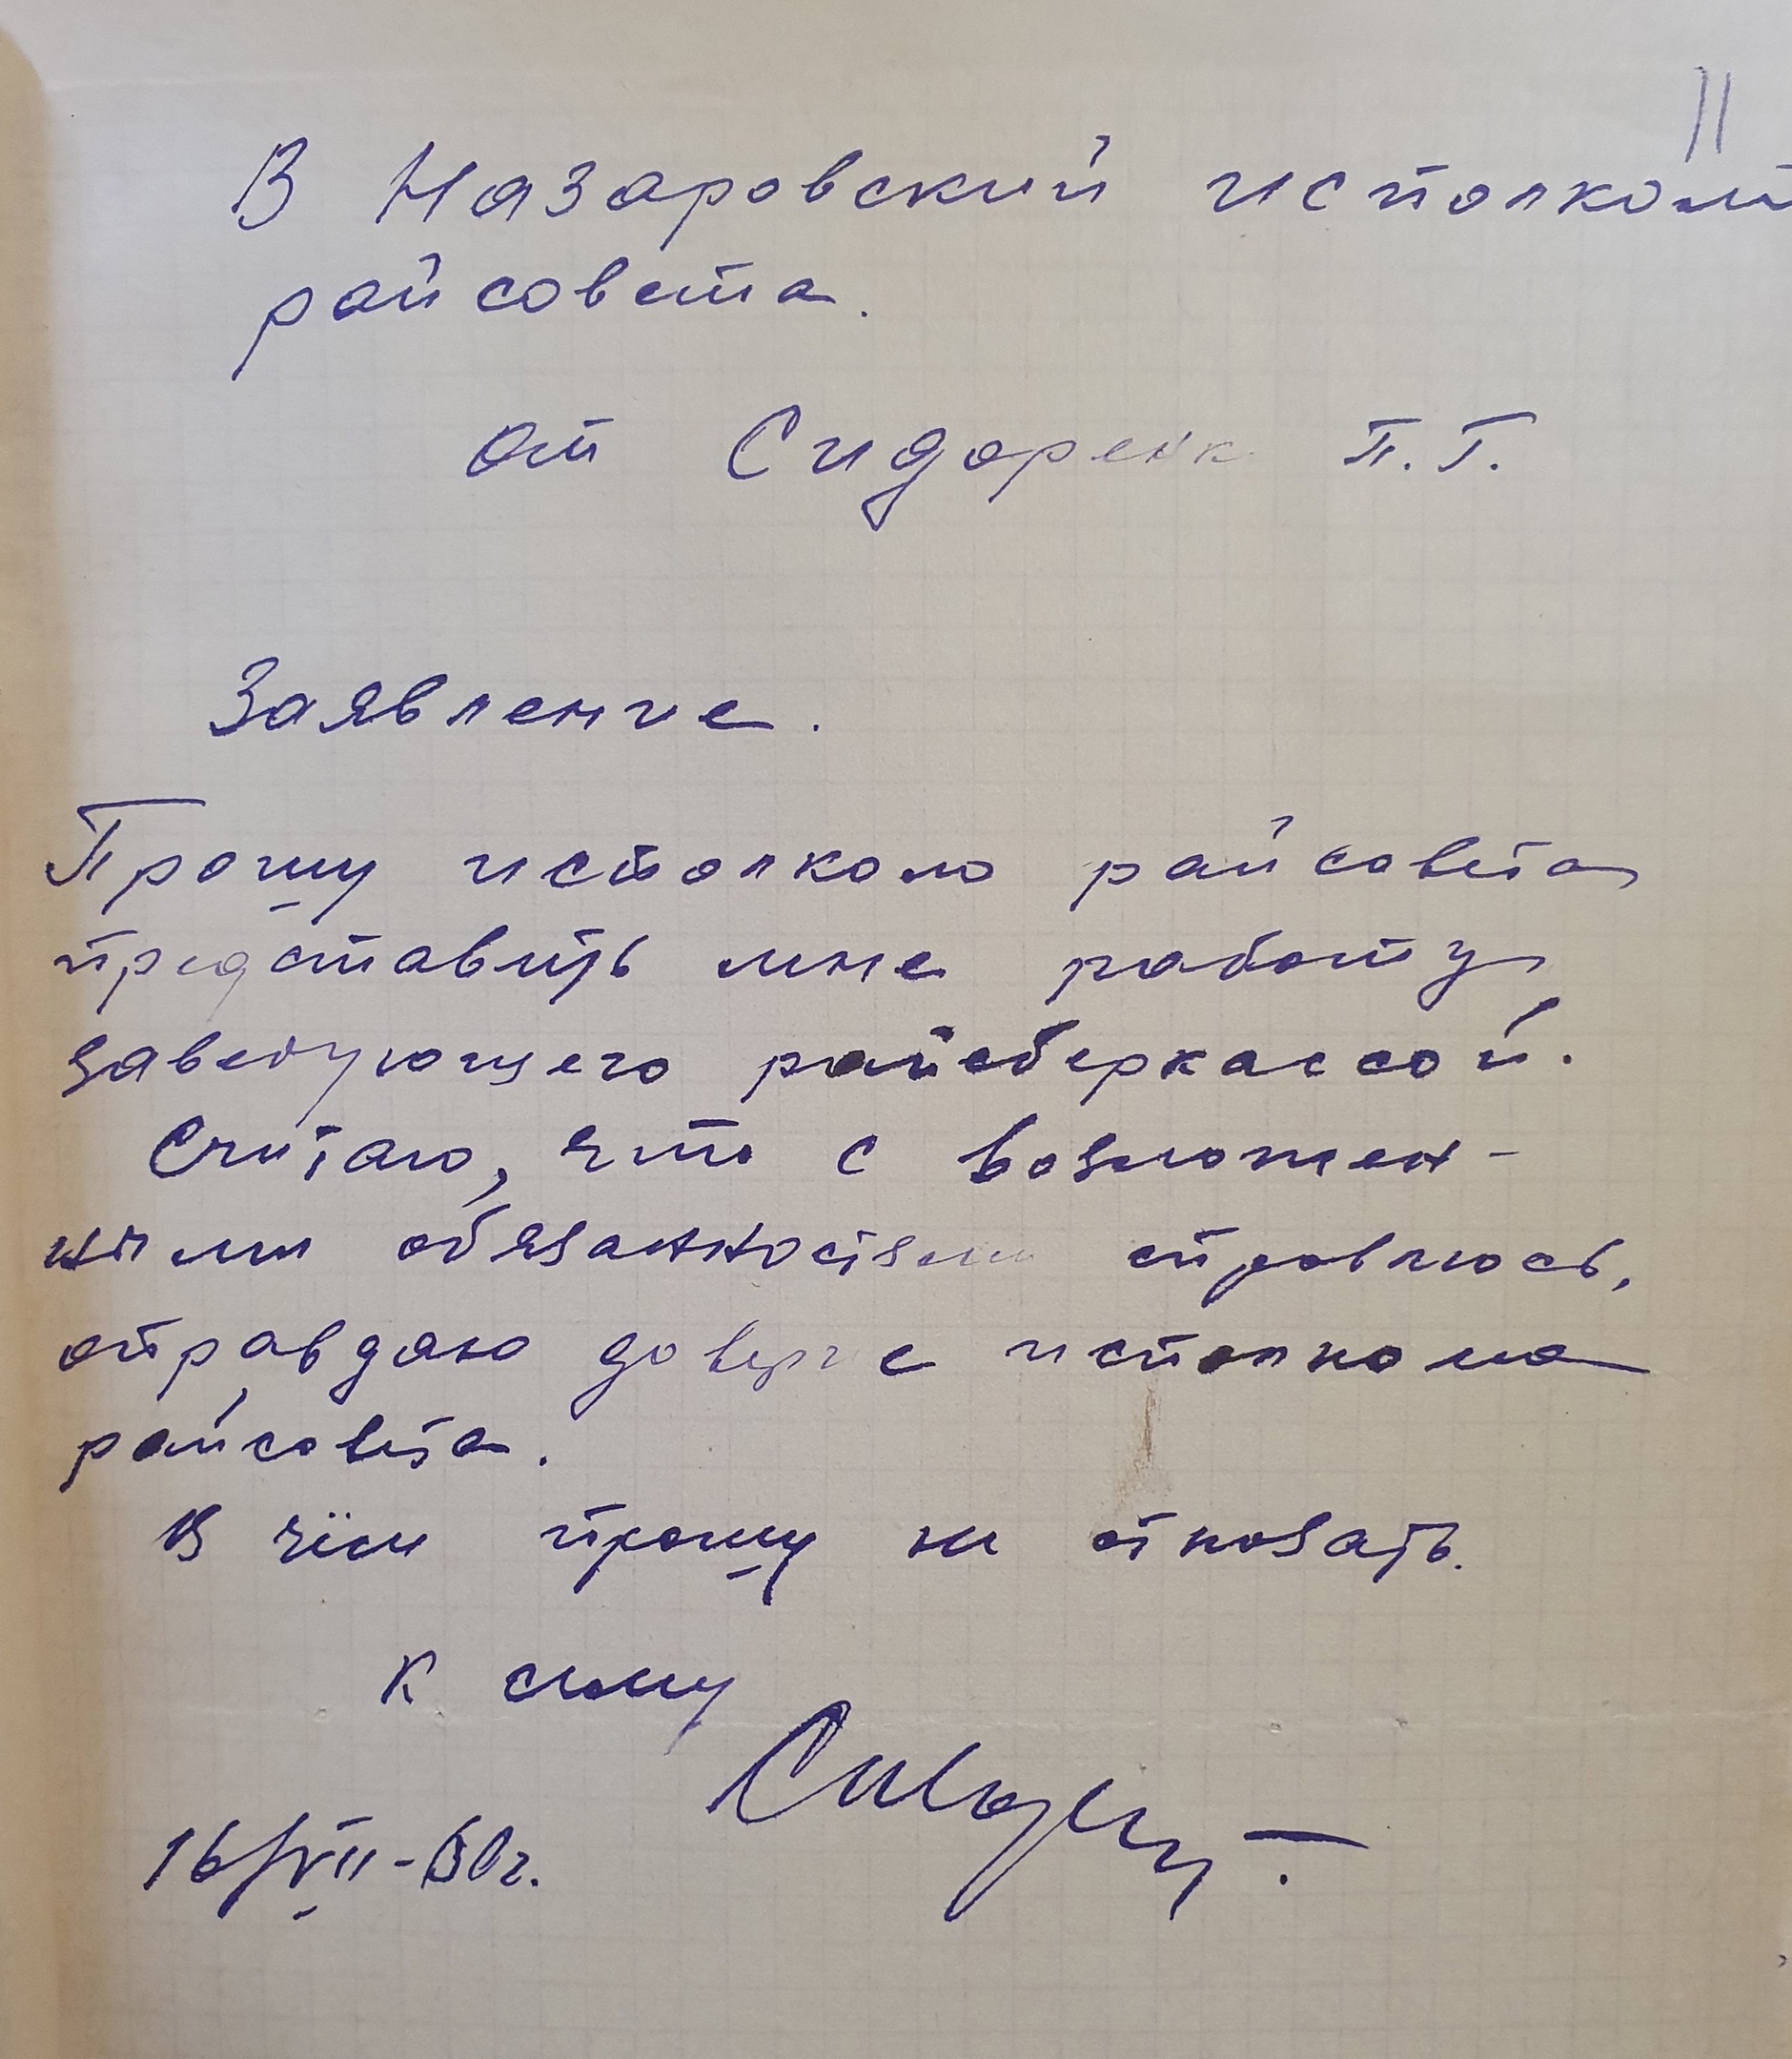 11
В Назаровский исполком
райсовета.
от Сидоренк П.Г.
Заявление.
Прошу исполком райсовета
представить мне работу
заведующего райсберкассой.
Считаю, что с возложен-
ными обязанностями справлюсь,
оправдаю доверие исполкома
райсовета.
В чём прошу не отказать.
К сему
16/VII-60г.